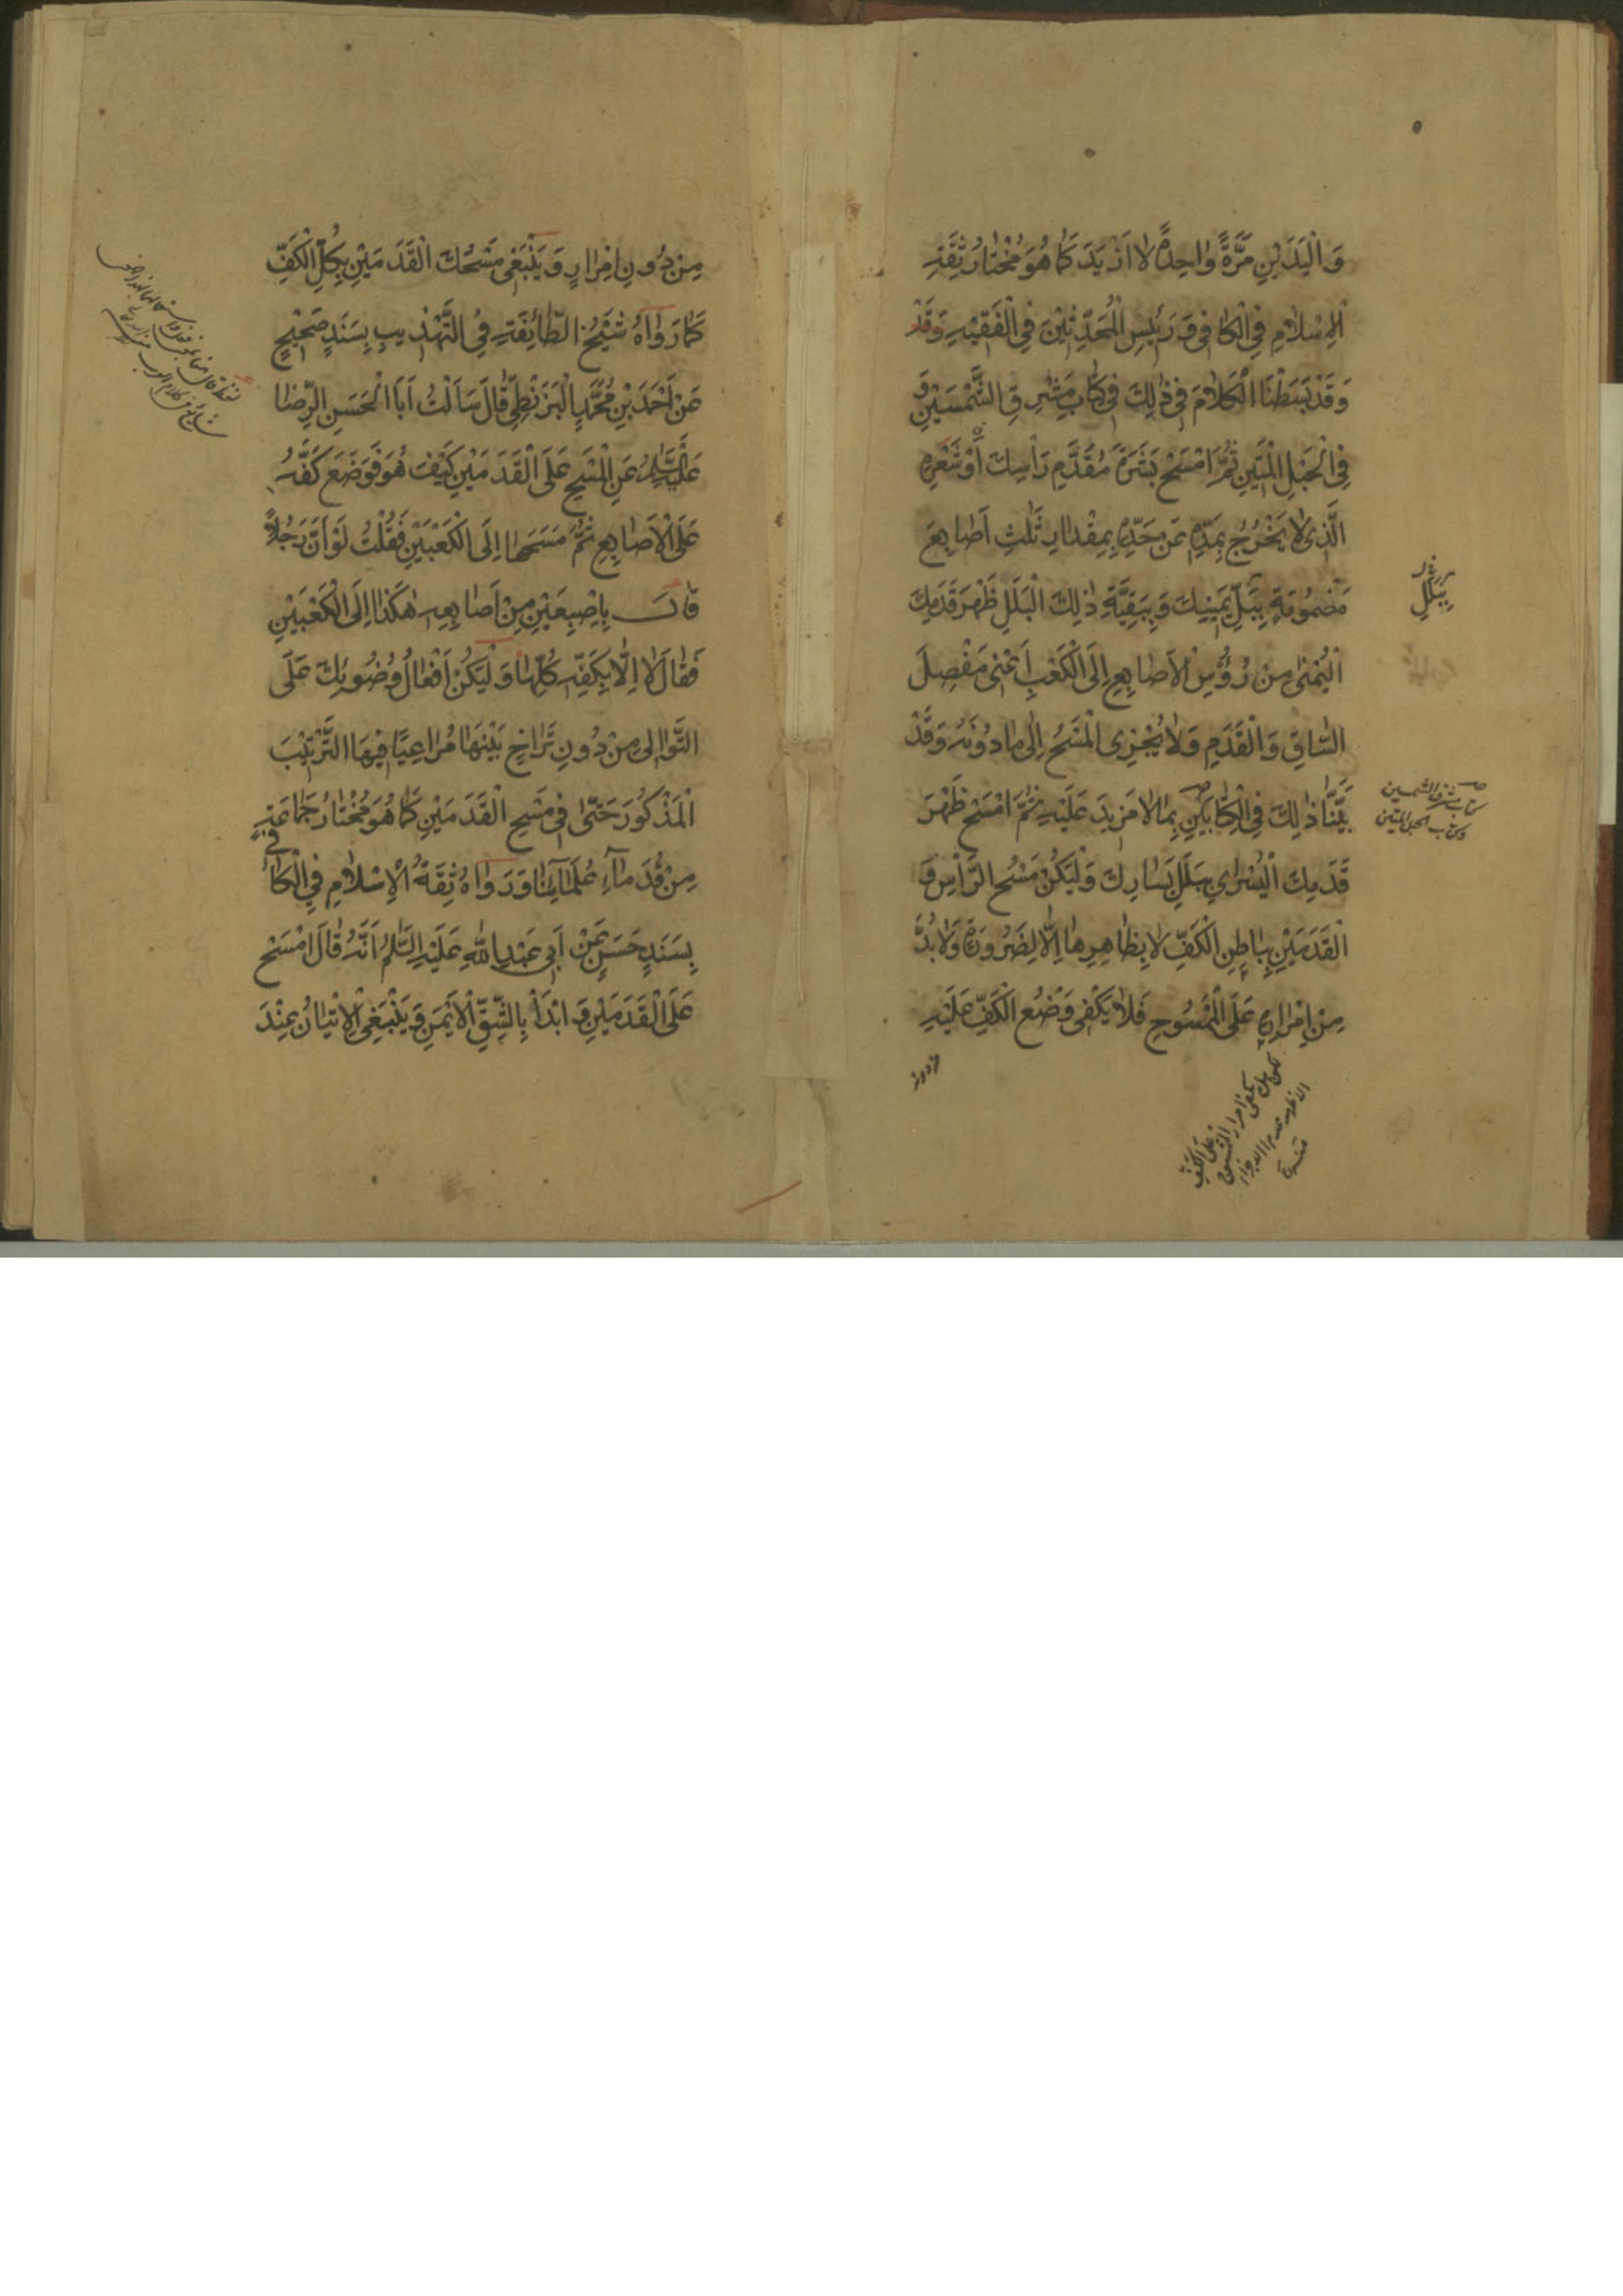 وَالْيَدَيْنِ مَرَّةً وٰاحِدَةً لٰا اَزْيَدَ كَمٰا هُوَ مُخْتٰارُ ثِقَةِ
الْاِسْلٰامِ فِي الْكٰافِى وَ رَئيسِ الْمُحَدِّثِيْنَ فِي الْفَقِيْهِ وَقَدْ
وَ قَدْ بَسَطْنَا الْكَلٰامَ فِى ذٰلِكَ فِى كِتٰابِ مَشْرِقِ الشَّمْسَيْنِ وَ
فِى الْحَبْلِ الْمَتِيْنِ ثُمَّ امْسَحْ بَشَرَةَ مُقَدَّمِ رَأْسِكَ اَوْ شَعْرِهِ
الَّذِى لٰا يَخْرُجُ بِمَدِّهِ عَنْ حَدِّهِ بِمِقْدٰارِ ثَلٰثِ اَصٰابِعَ
مَضْمُوْمَةٍ بِبَلَلِ يَمِيْنِكَ وَ بِبَقِيَّةِ ذٰلِكَ الْبَلَلِ ظَهْرَ قَدَمِكَ
الْيُمْنىٰ مِنْ رُؤُسِ الْاَصٰابِعِ اِلَى الْكَعْبِ اَعْنِى مَفْصِلَ
السّٰاقِ وَ الْقَدَمِ وَ لٰا يُجْزِى الْمَسْحُ اِلىٰ مٰا دُوْنَهُ وَ قَدْ
بَيَّنّٰا ذٰلِكَ فِى الْكِتٰابَيْنِ بِمٰا لٰا مَزِيدَ عَلَيْهِ ثُمَّ امْسَحْ ظَهْرَ
قَدَمِكَ الْيُسْرٰى بِبَلَلِ يَسٰارِكَ وَ لْيَكُنْ مَسْحُ الرَّأْسِ وَ
الْقَدَمَيْنِ بِبٰاطِنِ الْكَفِّ لٰا بِظٰاهِرِهٰا اِلّٰا لِضَرُوْرَةٍ وَ لٰا بُدَّ
مِنْ اِمْرٰارِهِ عَلَى الْمَمْسُوْحِ فَلٰا يَكْفِى وَضْعُ الْكَفِّ عَلَيْهِ
بِبَلَلِ
كتاب مشرق الشمسين
و كتاب الحبل المتين
من دون
مِنْ دُوْنِ اِمْرٰارٍ وَ يَنْبَغِى مَسْحُكَ الْقَدَمَيْنِ بِكُلِّ الْكَفِّ
كَمٰا رَوٰاهُ شَيْخُ الطّٰائِفَةِ فِى التَّهْذِيبِ بِسَنَدٍ صَحِيْحٍ
عَنْ اَحْمَدَ بْنِ مُحَمَّدٍ الْبَزَنْطِىِّ قٰالَ سَاَلْتُ اَبَا الْحَسَنِ الرِّضٰا
عَلَيْهِ السَّلٰمُ عَنِ الْمَسْحِ عَلَى الْقَدَمَيْنِ كَيْفَ هُوَ فَوَضَعَ كَفَّهُ
عَلَى الْاَصٰابِعِ ثُمَّ مَسَحَهٰا اِلَى الْكَعْبَيْنِ فَقُلْتُ لَوْ اَنَّ رَجُلاً
قٰالَ بِاِصْبِعَيْنِ مِنْ اَصٰابِعِهِ هٰكَذٰا اِلَى الْكَعْبَيْنِ
فَقٰالَ لٰا اِلّٰا بِكَفِّهِ كُلِّهٰا وَ لْيَكُنْ اَفْعٰالُ وُضُوئِكَ عَلَى
التَّوٰالِى مِنْ دُوْنِ تَرٰاخٍ بَيْنَهٰا مُرٰاعِيًا فِيْهَا التَّرْتِيْبَ
الْمَذْكُوْرَ حَتّٰى فِى مَسْحِ الْقَدَمَيْنِ كَمٰا هُوَ مُخْتٰارُ جَمٰاعَةٍ
مِنْ قُدَمٰآءِ عُلَمٰآئِنٰا وَ رَوٰاهُ ثِقَةُ الْاِسْلٰامِ فِى الْكٰافِى
بِسَنَدٍ حَسَنٍ عَنْ اَبِى عَبْدِ اللّٰهِ عَلَيْهِ السَّلٰمُ اَنَّهُ قٰالَ امْسَحْ
عَلَى الْقَدَمَيْنِ وَ ابْدَأْ بِالشِّقِّ الْاَيْمَنِ وَ يَنْبَغِى الْاِتْيٰانُ عِنْدَ